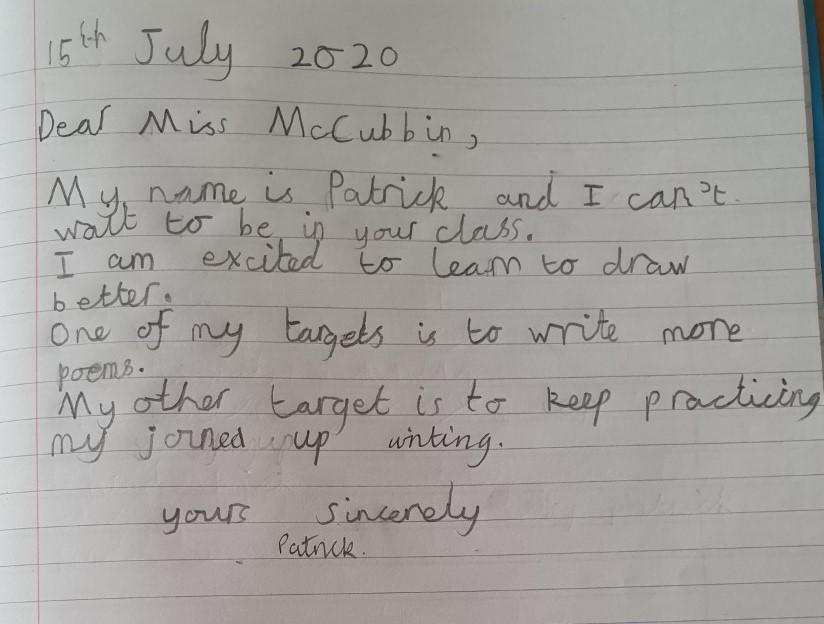 15th July 2020
Dear Miss McCubbin,
My name is Patrick and I can't
wait to be in your class.
I am excited to learn to draw
better.
One of my targets is to write more
poems.
My other target is to keep practicing
my joined up writing.
yours sincerely
Patrick.